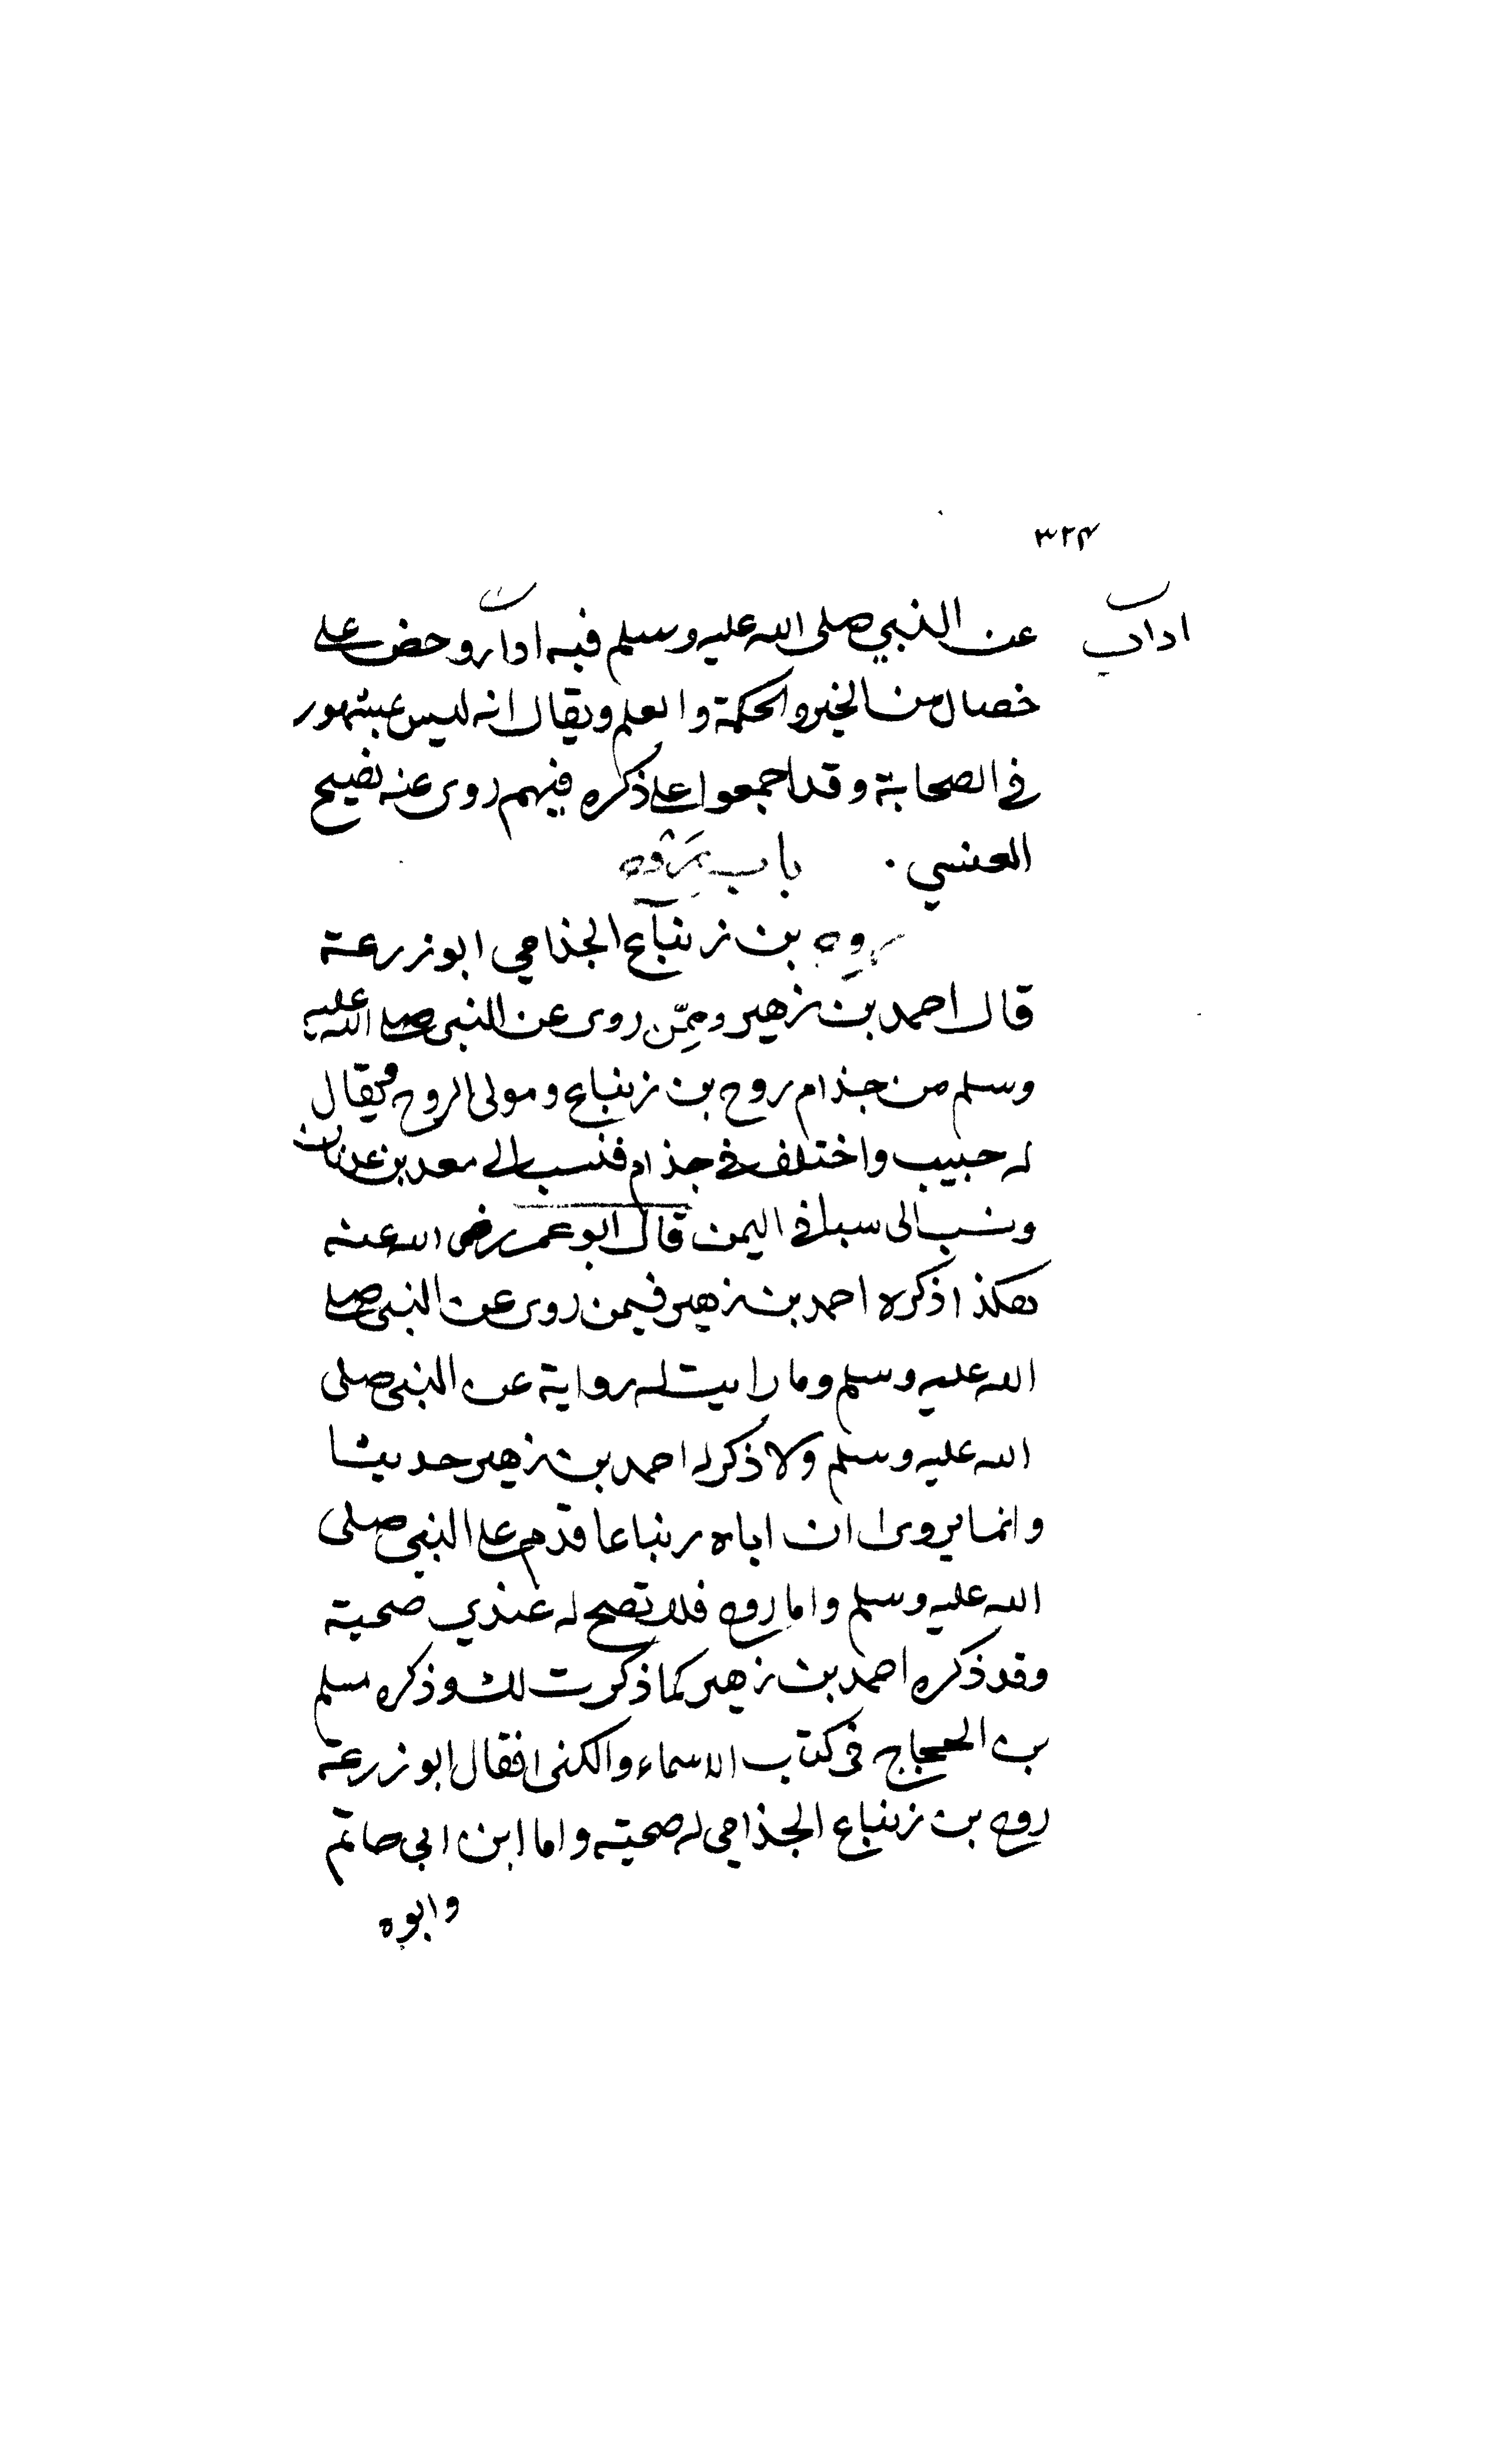 ٣٢٤
اداب
عن النبي صلى الله عليه وسلم فيه اداب وحض على
خصال من الخير والحكمة والعلم ويقال انه ليس بمشهور
في الصحابة وقد اجمعوا على ذكره فيهم روى عنه نصيح
العنسي .
باب روح
روح بن زنباع الجذامي ابو زرعة
قال احمد بن زهير وممّن روى عن النبي صلى الله عليه
وسلم من جذام روح بن زنباع ومولى لروح يقال
له حبيب واختلف في جذام فنسب الى معد بن عدنان
ونسب الى سبا في اليمن قال ابو عمر رضى الله عنه
هكذا ذكره احمد بن زهير فيمن روى عن النبي صلى
الله عليه وسلم وما رايت له رواية عن النبي صلى
الله عليه وسلم ولا ذكر له احمد بن زهير حديثا
وانما يروى ان اباه زنباعا قدم على النبي صلى
الله عليه وسلم واما روح فلا تصح له عندي صحبته
وقد ذكره احمد بن زهير كما ذكرت لك وذكره مسلم
بن الحجاج في كتاب الاسماء والكنى فقال ابو زرعة
روح بن زنباع الجذامي له صحبته واما ابن ابي حاتم
وابوه